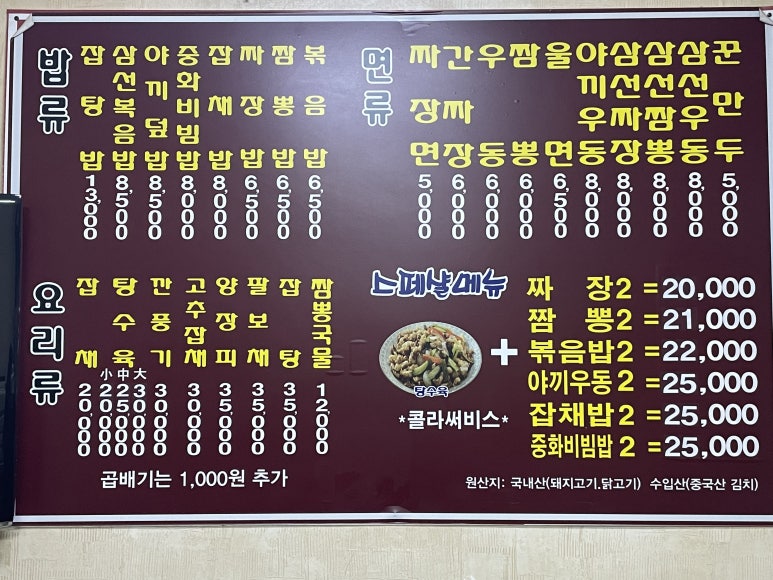 밥류
잡탕밥 13,000
삼선복음밥 8,500
야끼덮밥 8,500
중화비빔밥 8,000
잡채밥 8,000
짜장밥 6,500
짬뽕밥 6,500
볶음밥 6,500
면류
짜장면 5,000
간짜장 6,000
우동 6,000
짬뽕 6,000
울면 6,500
야끼우동 8,000
삼선짜장 8,000
삼선짬뽕 8,000
삼선우동 8,000
꾼만두 5,000
요리류
잡채 20,000
탕수육 小 20,000 中 25,000 大 30,000
깐풍기 30,000
고추잡채 30,000
양장피 35,000
팔보채 35,000
잡탕 35,000
짬뽕국물 12,000
곱배기는 1,000원 추가
스페샬메뉴
탕수육
*콜라써비스*
+
짜 장2 =20,000
짬 뽕2 =21,000
볶음밥2 =22,000
야끼우동2 =25,000
잡채밥2 =25,000
중화비빔밥 2 =25,000
원산지: 국내산(돼지고기.닭고기) 수입산(중국산 김치)